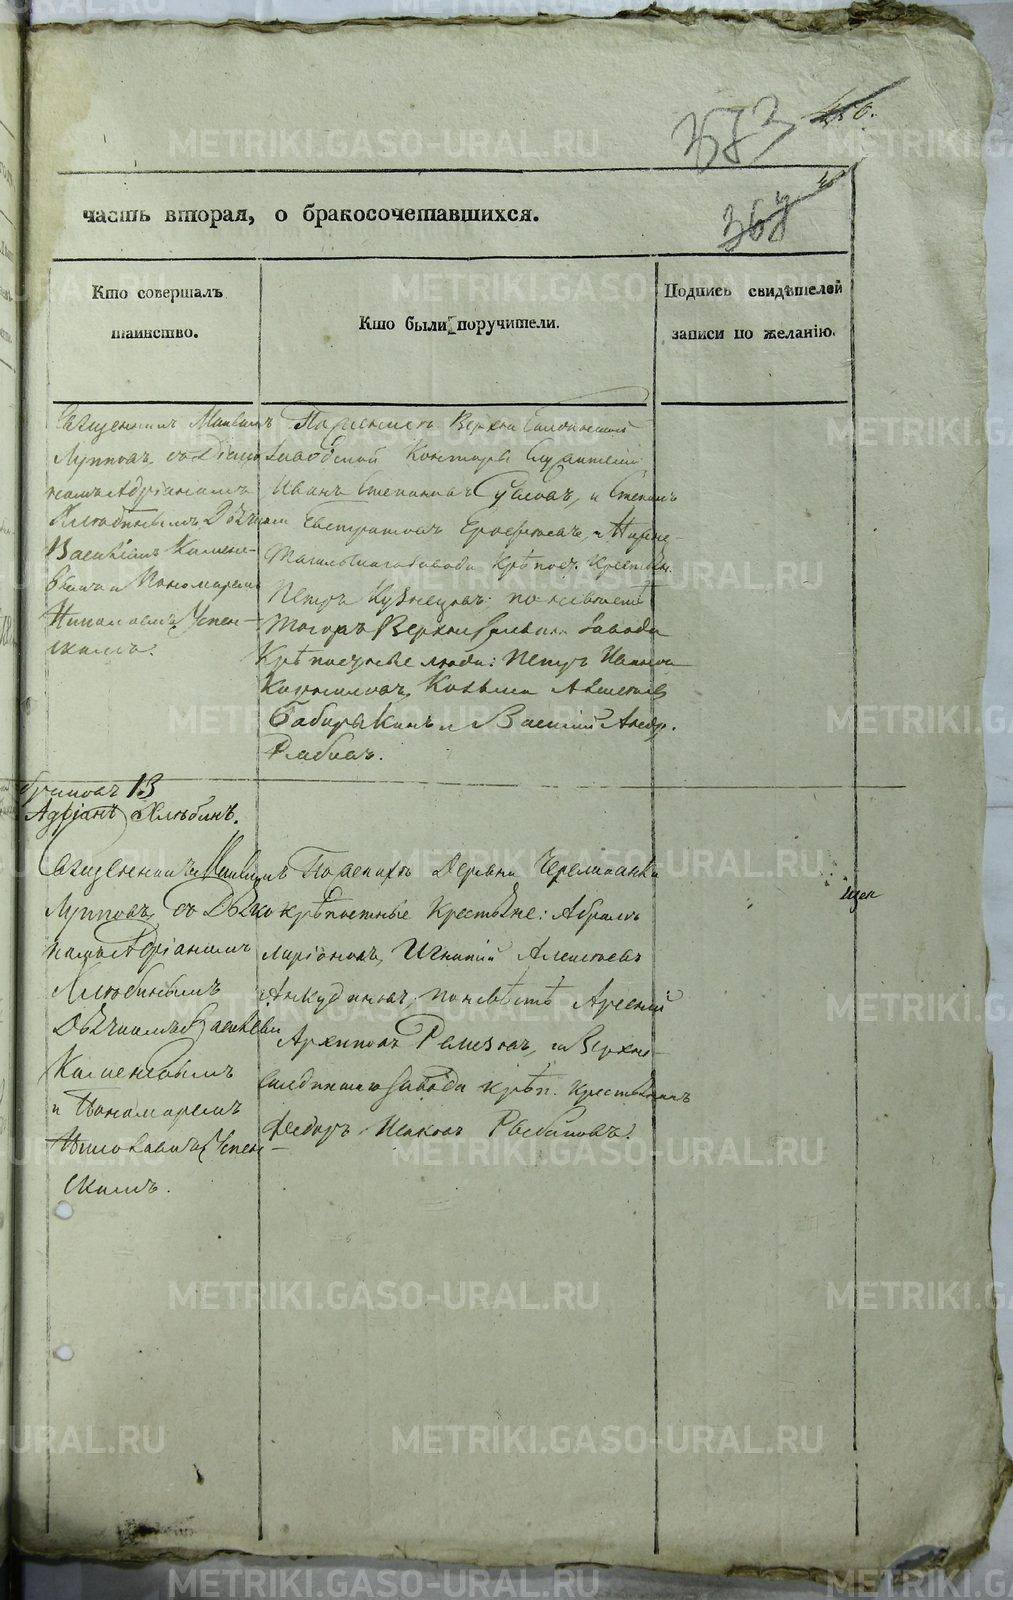 METRIKI.GASO-URAL.RU
383
450.
367
часть вторая, о бракосочетавшихся.
Кто совершалъ
таинство.
Кто были поручители.
Подпись свидѣтелей
записи по желанію.
Священникъ
Луповъ, съ Діако
номъ Адріаномъ
Хлюбинымъ Дьячкомъ
Василіемъ Камене-
вымъ и Пономаремъ
Николаемъ Успен-
скимъ.
По женихѣ Верхне Салдинской
Заводской Конторы Служители
Иванъ Степановъ и Степанъ
Евстратовъ Ерофѣевъ, и Нижне-
Тагильскаго завода Крѣпос. Крестьян.
Петръ Кузнецовъ: по невѣстѣ
тогоже Верхне Салдин. Завода
Крѣпостные люди: Петръ Иванов
Корниловъ, Козьма Алексѣев
Бабарыкинъ и Василій Андр.
Рябовъ.
браковъ 13
Адріанъ Хлюбинъ.
Священникъ
Луповъ, съ Діако
номъ Адріаномъ
Хлюбинымъ
Дьячкомъ Василіем
Каменевымъ
и Пономаремъ
Николаемъ Успен-
скимъ.
По женихѣ Деревни Черемшанки
крѣпостные Крестьяне: Абрамъ
Ларіоновъ, Игнатій Алексѣевъ
Анкудиновъ; по невѣстѣ Арсеній
Архиповъ Ремезовъ, и Верхне-
Салдинскаго Завода крѣп. Крестьянинъ
Федоръ Исаковъ